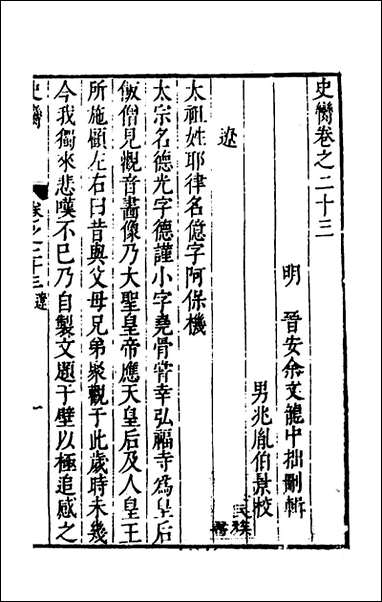 史臠卷之二十三
明 晉安余文龍中拙刪輯
男兆胤伯景校
遼
太祖姓耶律名億字阿保機
太宗名德光字德謹小字堯骨嘗幸弘福寺為皇后
飯僧見觀音畫像乃大聖皇帝應天皇后及人皇王
所施顧左右曰昔與父母兄弟聚觀于此歲時未幾
今我獨來悲嘆不已乃自製文題于壁以極追感之
史臠
卷之二十三 遼
一